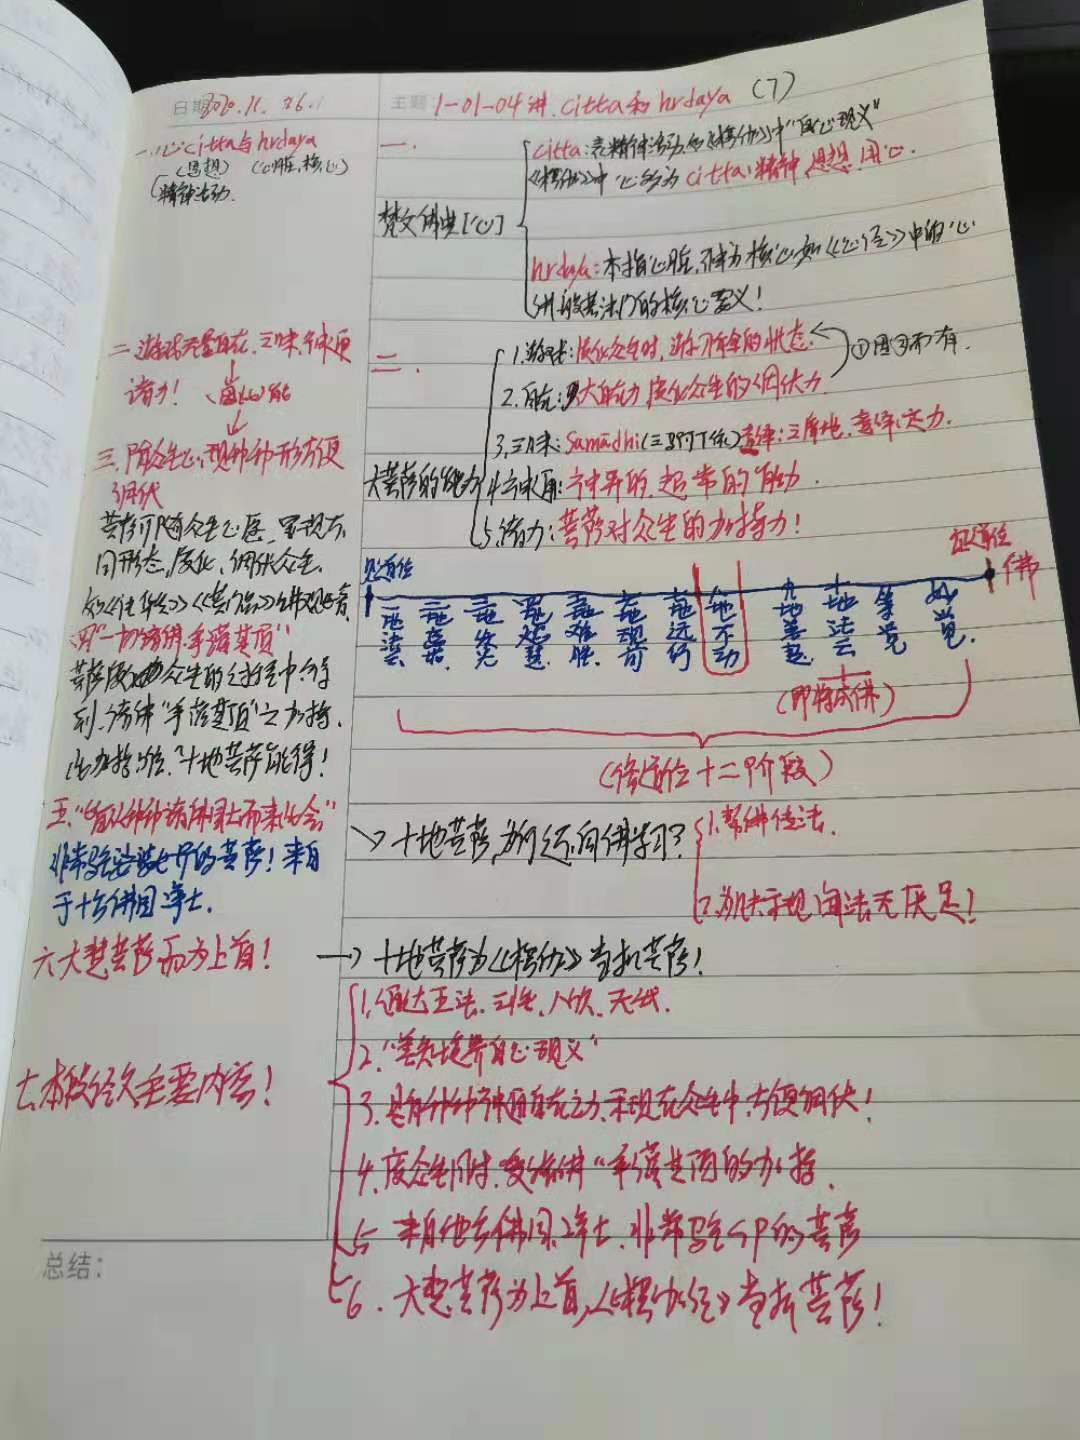 日期 2020.11.26. 主题 1-01-04讲.citta和hrdaya (7)
一.心citta与hrdaya
(思想) (心脏,核心)
精神活动.
一.
梵文佛典[心]
citta:表精神活动,如《楞伽》中"自心现义"
《楞伽》中心多为citta,精神,思想,用心.
hrdaya:本指心脏,引申为核心如《心经》中的"心"
般若法门的核心意义!
二.游戏无量自在.三昧.神通
诸力!
二.
大菩萨的能力
1.游戏:度化众生时,游刃有余的状态. ①因②而有.
2.自在:大自在力,度化众生的调伏力
3.三昧:Samādhi 音译:三摩地,意译:定力.
4.神通:神异的,超常的能力.
5.诸力:菩萨对众生的加持力!
三.随众生心,现种种形方便
调伏
菩萨可随众生心愿
同形态,度化,调伏众生.
"一切诸佛手灌其顶"
菩萨度众生的过程中,得
到诸佛"手灌其顶"之加持.
十地菩萨能得!
见道位 证道位
佛
二地 三地发光 四地焰慧 五地难胜 六地现前 七地远行 八地不动 九地善慧 十地法云 等觉 妙觉
(即将成佛)
(修道位十二个阶段)
五."自从种种诸佛国土而来此会"
非常 的菩萨!来自
于十方佛国净土.
> 十地菩萨,为何还向佛学习?
1.帮佛传法.
2. 示现闻法无厌足!
六大慧菩萨而为上首!
→ 十地菩萨为《楞伽》当机菩萨!
七.本段经文主要内容!
1.通达五法.三性. 无我.
2."善知境界自心现义"
3.具有种种神通自在之力,示现在众生中,方便调伏!
4.度众生同时,受诸佛"手灌其顶的加持.
5.来自他方佛国,净土.非常 的菩萨
6.大慧菩萨为上首,《楞伽经》当机菩萨!
总结: